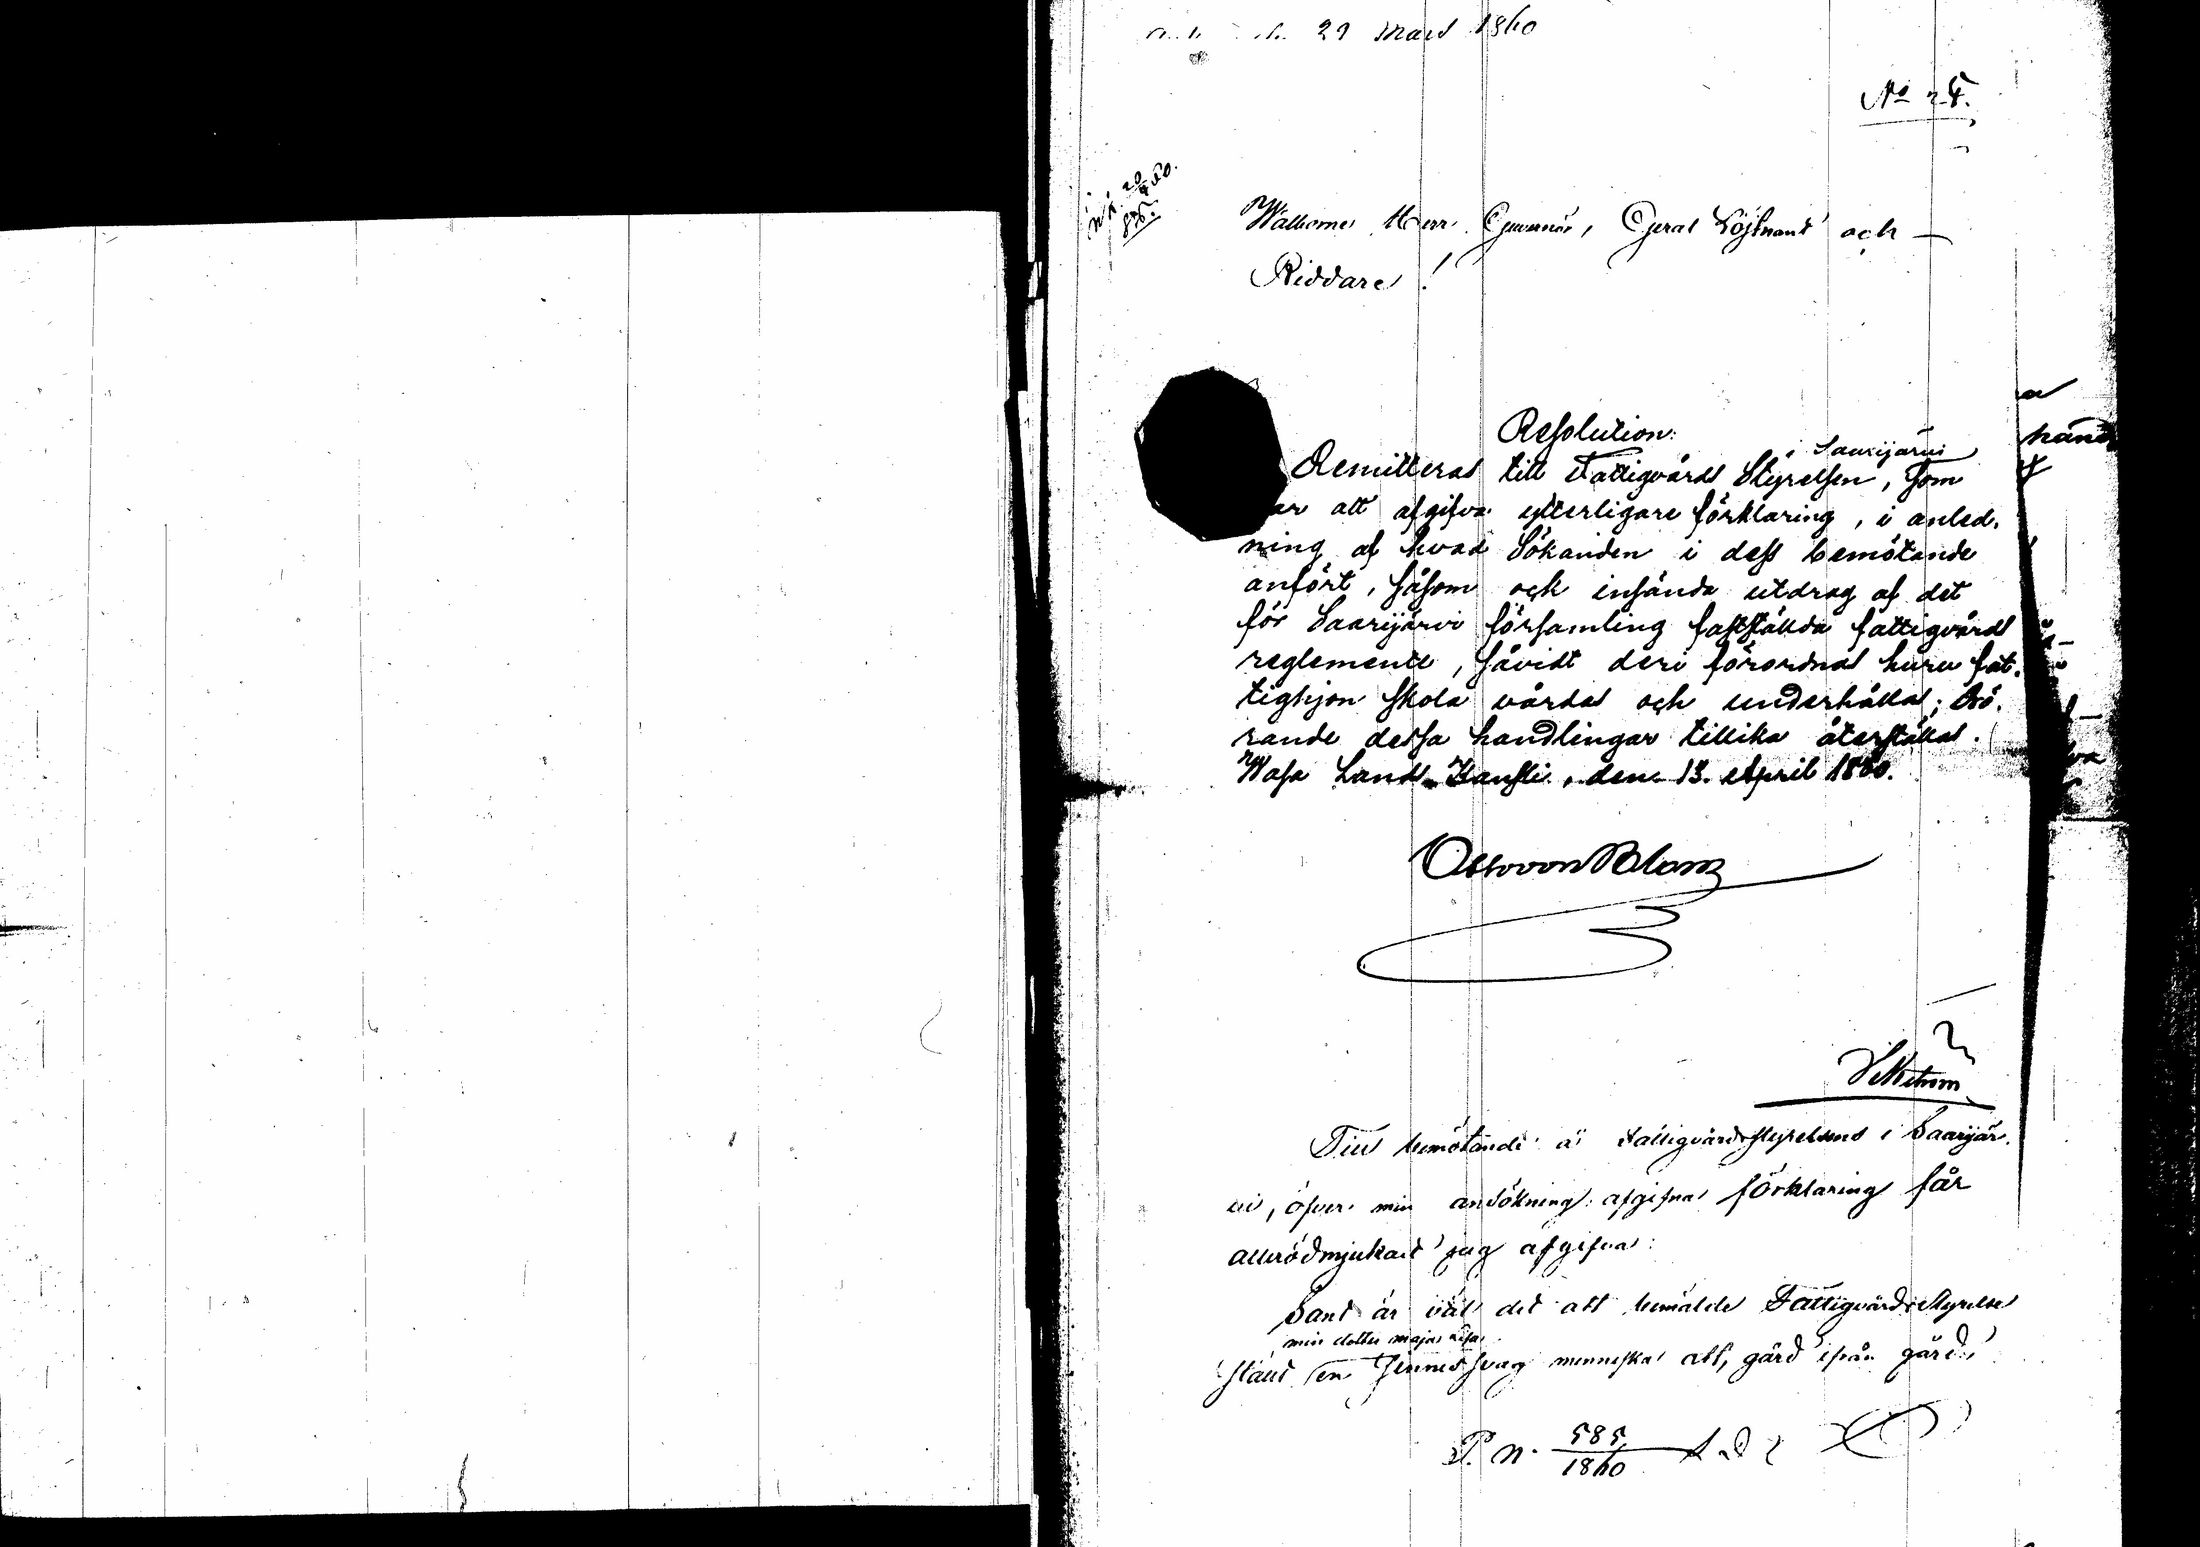 29 Mars 1860
No 24.
Wälborne Herr Guvernör, General Löjtnant och
Riddare!
Resolution:
Remitteras till Fattigvårds Styrelsen i Saarijärvi, som
har att afgifva ytterligare förklaring, i anled-
ning af hvad Sökanden i dess bemötande
anfört, såsom och insända utdrag af det
för Saarijärvi församling fastställda fattigvårds
reglemente, såvidt deri förordnas huru fat-
tighjon skola vårdas och underhållas; bö-
rande dessa handlingar tillika återställas.
Wasa Lands-Kansli, den 13. April 1860.
Otto von Blom
Till bemötande å Fattigvårdsstyrelsens i Saarijär-
vi, öfver min ansökning afgifna förklaring får
allraödmjukast jag afgifva:
Sant är väl det att bemälde Fattigvårdsstyrelse
min dotter Maja Lisa
en sinnessvag menniska att, gård ifrån gård,
P. N. 585/1860